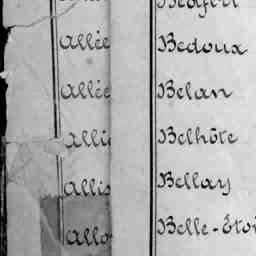 Allée Bedoux
Allée Belan
Belhôte
Allis Bellay
Allo Belle-Étoi